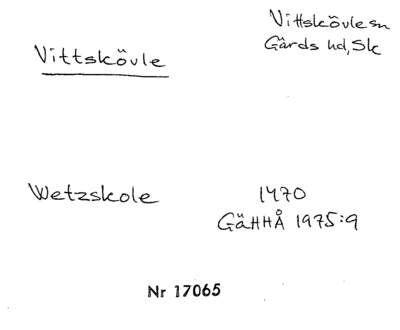 Vittskövle
Vittskövle sn
Gärds hd, Sk
Wetzskole
1470
GäHHÅ 1975:9
Nr 17065